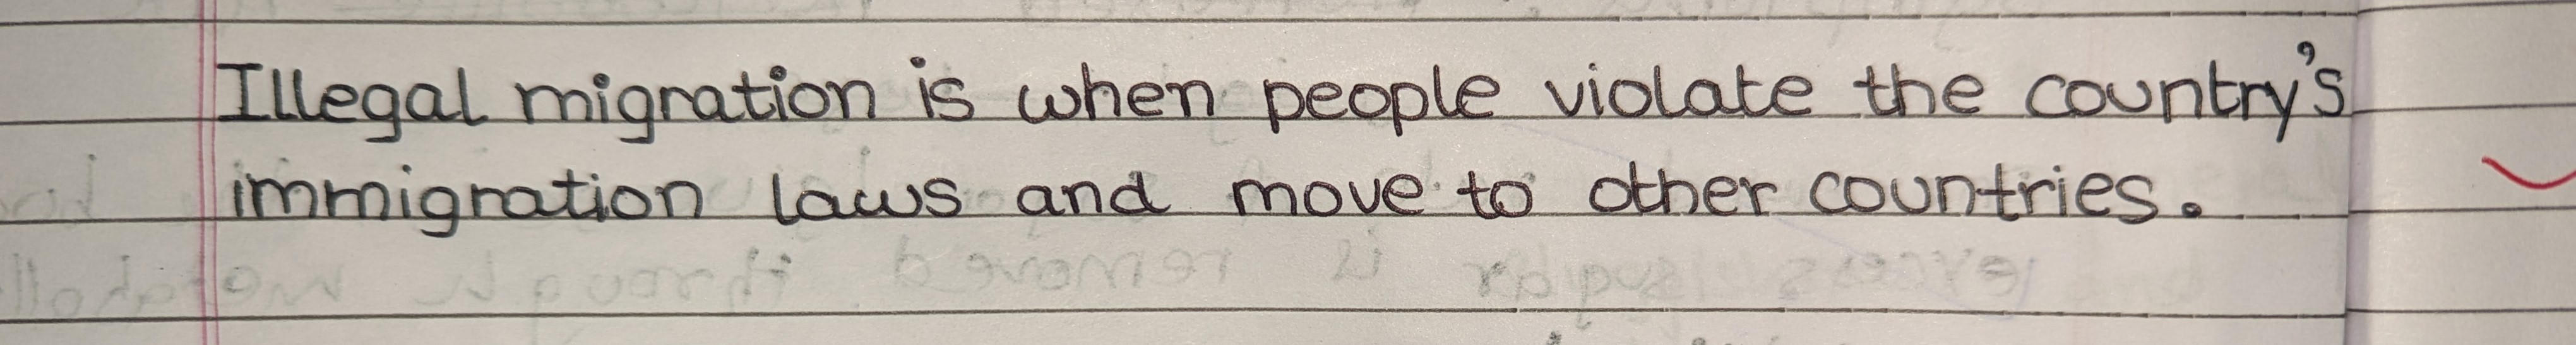 Illegal migration is when people violate the country's
immigration laws and move to other countries.